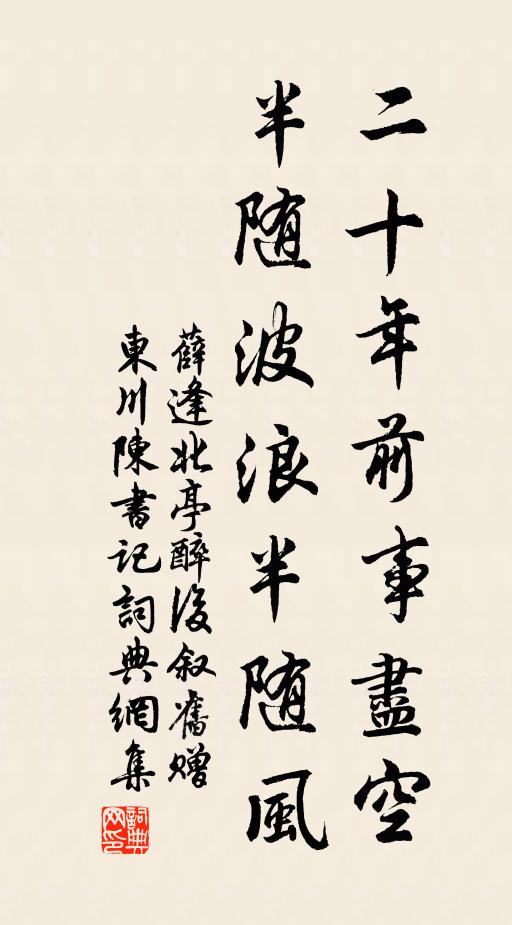 二十年前事盡空
半随波浪半随風
薛逢北亭醉後叙舊贈
東川陳書記詞典網集
詞典网印